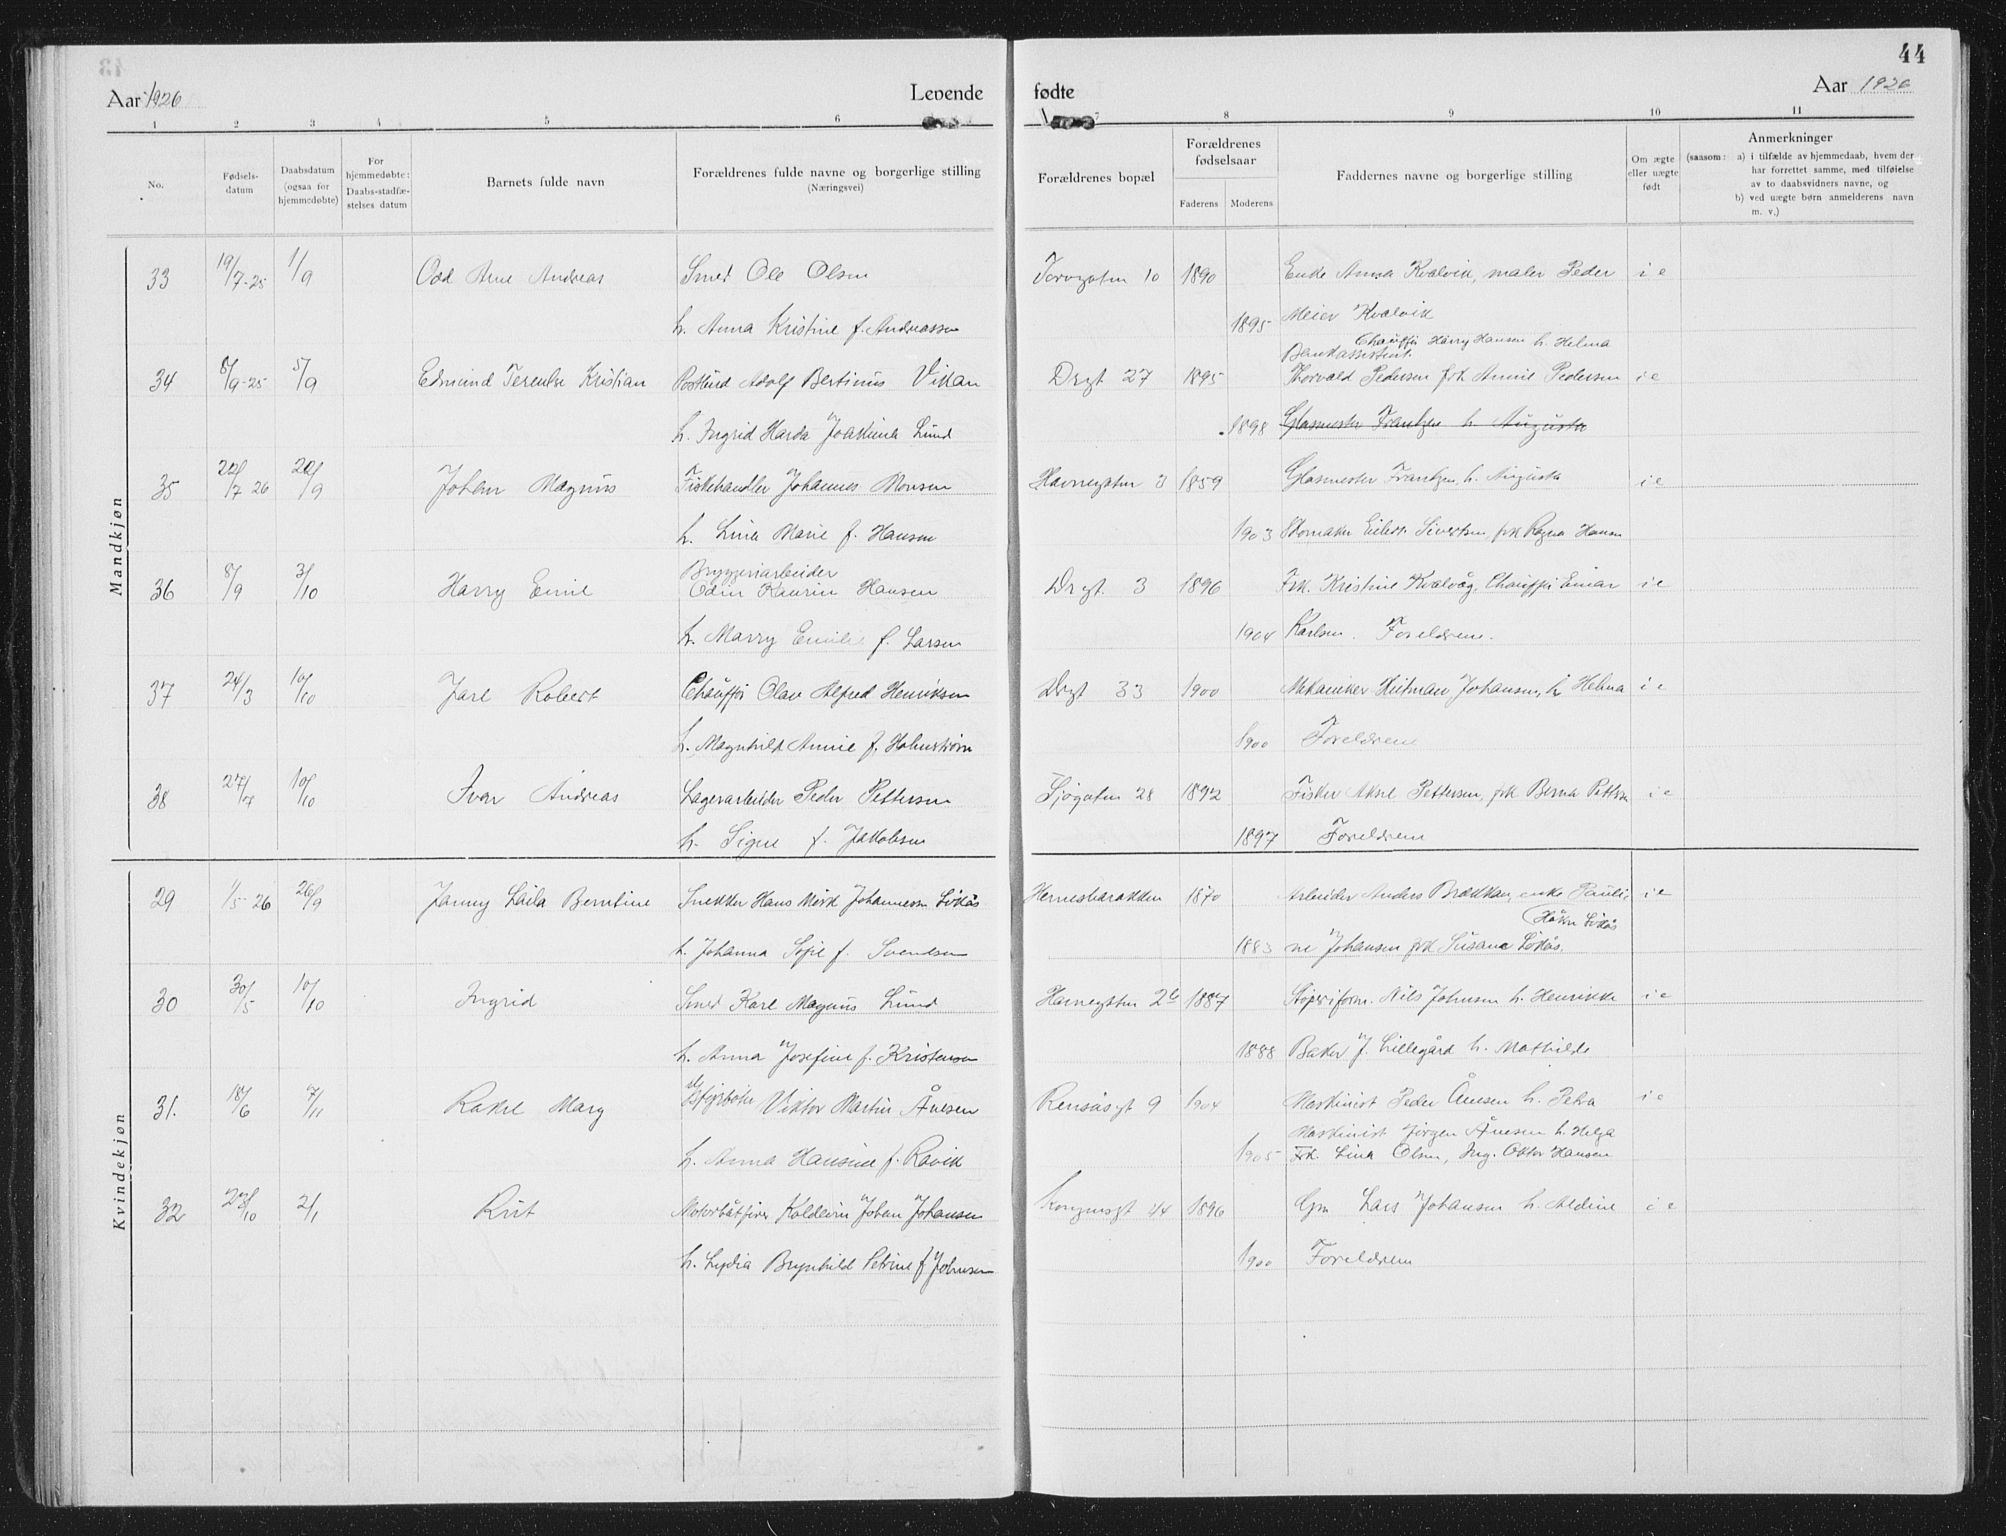 44
Aar 1926 Levende fødte Aar 1926
1 2 3 4 5 6 7 8 9 10 11
No.
Fødsels-
datum
Daabsdatum
(ogsaa for
hjemmedøbte)
For
hjemmedøbte:
Daabs-stadfæ-
stelses datum
Barnets fulde navn
Forældrenes fulde navne og borgerlige stilling
(Næringsvei)
Forældrenes bopæl
Forældrenes
fødselsaar
Faderens Moderens
Faddernes navne og borgerlige stilling
Om ægte
eller uægte
født
Anmerkninger
(saasom: a) i tilfælde av hjemmedaab, hvem der
har forrettet samme, med tilføielse
av to daabsvidners navne, og
b) ved uægte børn anmelderens navn
m. v.)
Mandkjøn
33 19/7-25 1/9 Odd Arne Andreas Smed Ole Olsen Torvgaten 10 1890 Enke Anna Kvalvik, maler Peder i e
h. Anna Kristine f. Andreassen 1895 Meier Kvalvik
Chauffør Harry Hansen h. Helma
Bankassistent
34 8/9-25 5/9 Edmund Terentse Kristian Postbud Adolf Bertinus Vikan Drgt 27 1895 Thorvald Pedersen frk Annie Pedersen i e
h. Ingrid Harda Joakima Lund 1898 Glasmester Frantzen h. Augusta
35 22/7 26 20/9 Johan Magnus Fiskehandler Johannes Monsen Havnegaten 3 1859 Glasmester Frantzen, h. Augusta i e
h. Line Marie f. Hansen 1903 Skomaker Eilert Sivertsen, frk Ragna Hansen
Bryggeriarbeider
36 8/9 3/10 Harry Emil Odin Kaurin Hansen Drgt. 3 1896 Frk. Kristine Kvalvåg, Chauffør Einar i e
h. Marry Emilie f. Larsen 1904 Karlsen. Foreldrene.
37 24/3 10/10 Jarl Robert Chauffør Olav Alfred Henriksen Drgt 33 1900 Mekaniker Hilmar Johansen, h Helma i e
h. Magnhild Annie f. Holmstrøm 1900 Foreldrene
38 27/7 10/10 Ivar Andreas Lagerarbeider Peder Pettersen Sjøgaten 28 1892 Fisker Aksel Pettersen, frk Berna Pettersen i e
h. Signe f. Jakobsen 1897 Foreldrene
Kvindekjøn
29 1/5 26 26/9 Janny Laila Berntine Snekker Hans Mørk Johannessen Lidås Hernesbarakken 1870 Arbeider Anders Brækkan, enke Pauli- i e
Håkon Lidås
h. Johanna Sofie f. Svendsen 1883 ne Johansen frk Susana Lidås.
30 30/5 10/10 Ingrid Smed Karl Magnus Lund Havnegaten 2b 1887 Støperiform. Nils Johnsen h. Henrikke i e
h. Anna Josefine f. Kristensen 1888 Baker J. Lillegård h. Mathilde
31. 18/6 7/11 Rakel Mary Viktor Martin Ånesen Rensåsgt 9 1904 Maskinist Peder Ånesen h. Petra i e
Maskinist Jörgen Ånesen h. Helga
h. Anna Hansine f. Ravik 1905 Frk. Lina Olsen, Ing. Oktor Hansen
32 23/10 2/1 Rut Motorbåtfører Koldevin Johan Johansen Kongensgt 44 1896 Gm Lars Johansen h. Aldine i e
h. Lydia Brynhild Petrine f Johnsen 1900 Foreldrene